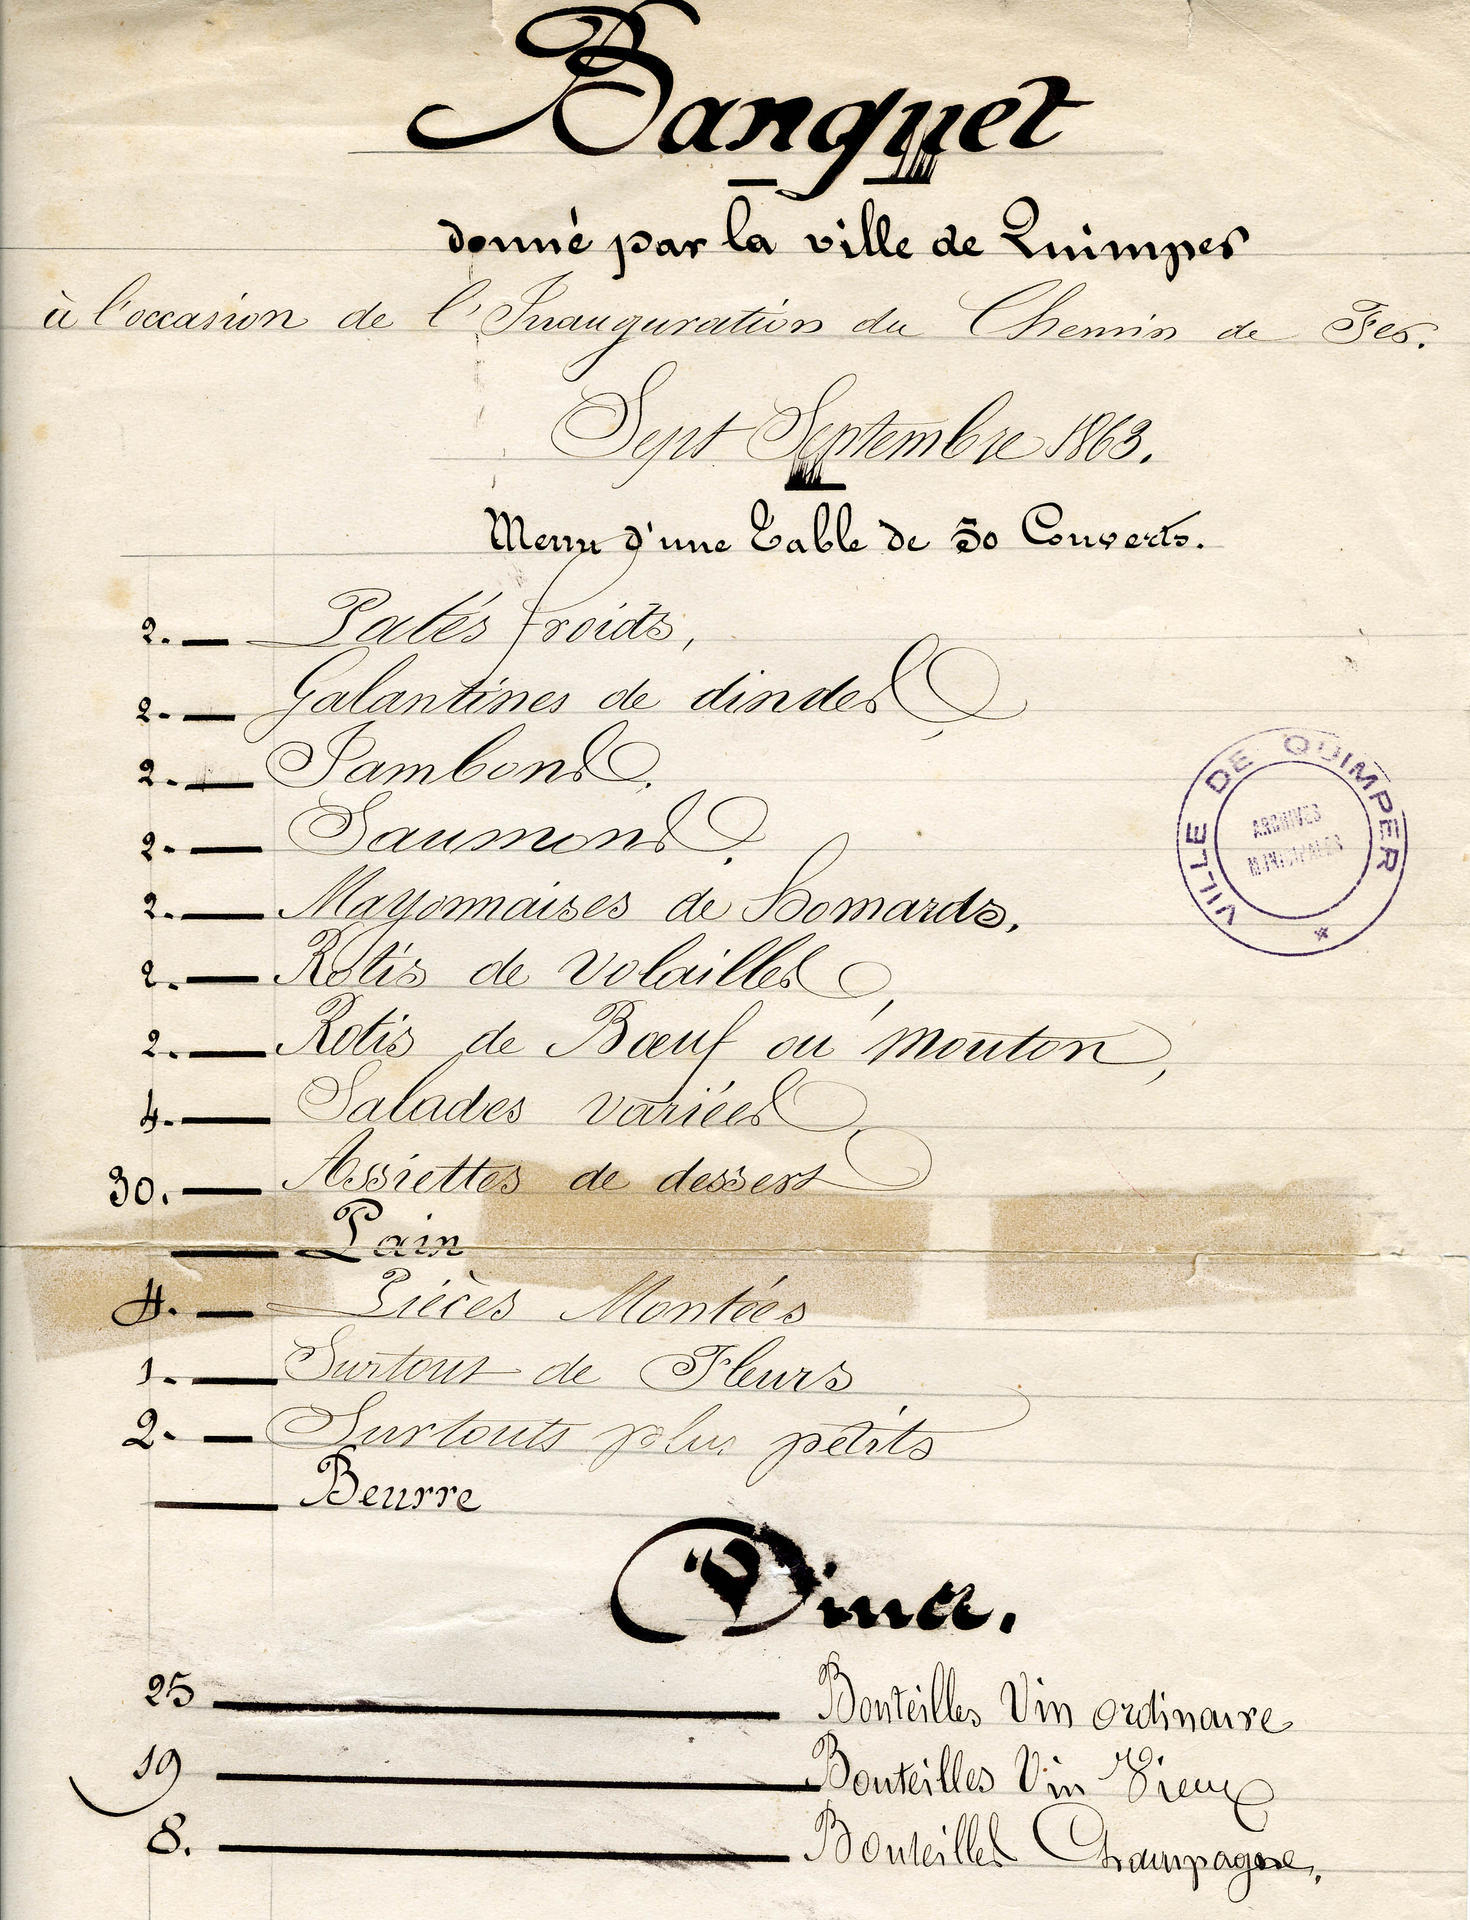 Banquet
donné par la ville de Quimper
à l'occasion de l'Inauguration du Chemin de Fer.
Sept Septembre 1863.
Menu d'une Table de 50 Couverts.
2. — Patés froids,
2. — Galantines de dindes,
2. — Jambons.
2. — Saumons.
2. — Mayonnaises de homards.
2. — Rotis de volailles,
2. — Rotis de Bœuf ou mouton,
4. — Salades variées
30. — Assiettes de dessert
— Pain
4. — Pièces Montées
1. — Surtout de Fleurs
2. — Surtouts plus petits
— Beurre
Vins.
25 — Bouteilles Vin ordinaire
19 — Bouteilles Vin Vieux
8. — Bouteilles Champagne.
VILLE DE QUIMPER
ARCHIVES
MUNICIPALES